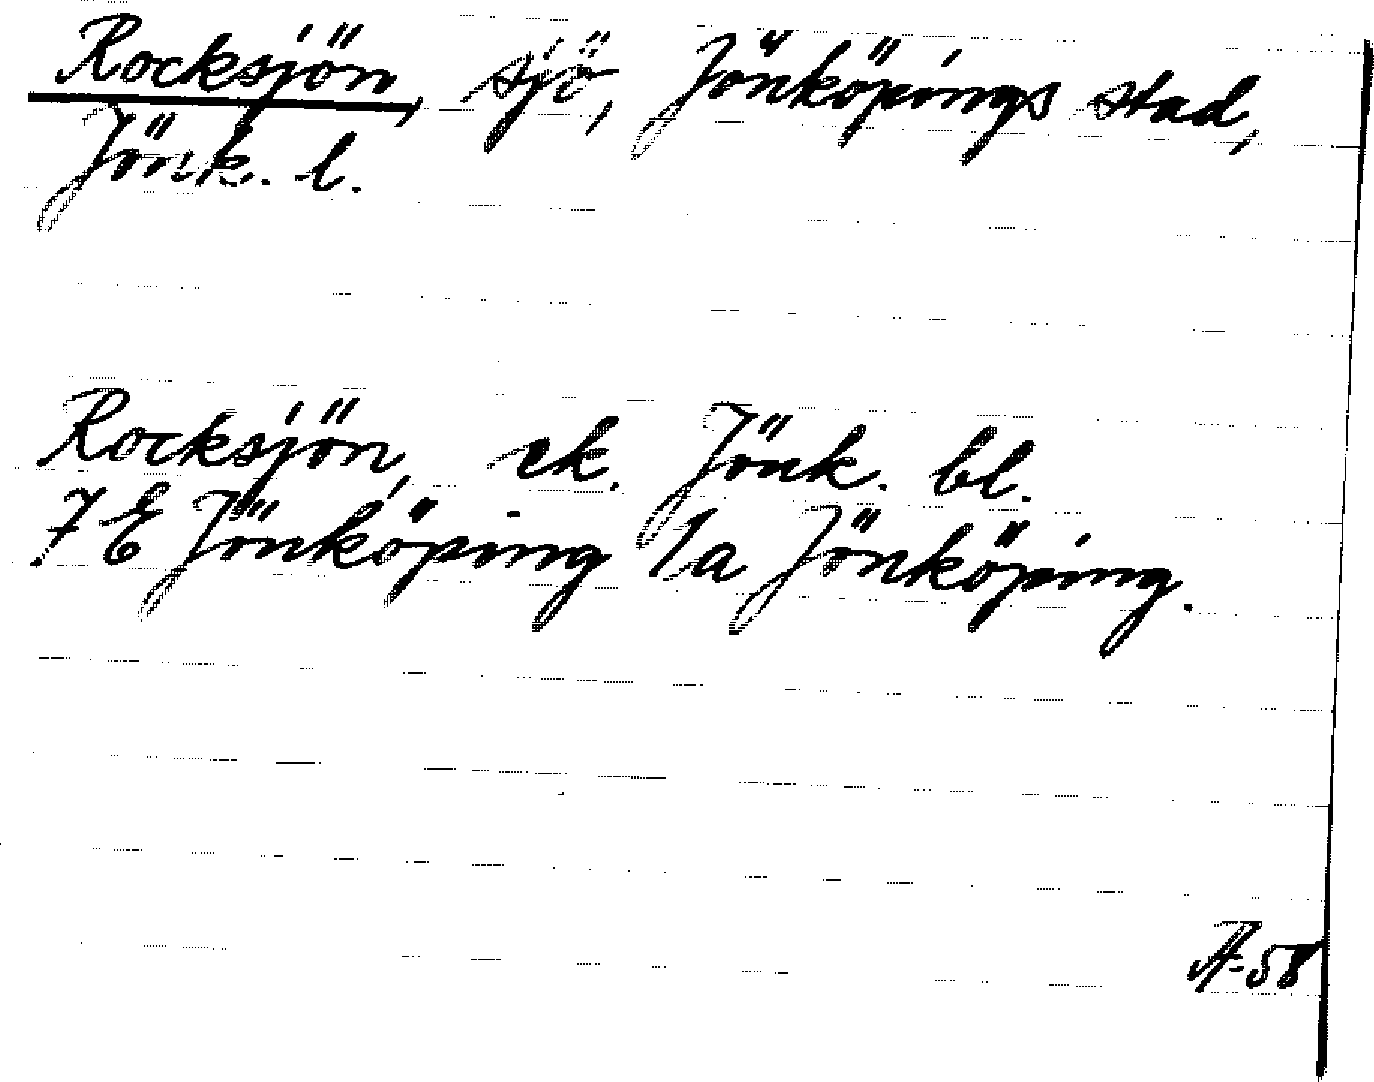 Rocksjön, sjö, Jönköpings stad,
Jönk. l.
Rocksjön, ek. Jönk. bl.
7 E Jönköping 1a Jönköping.
A-58